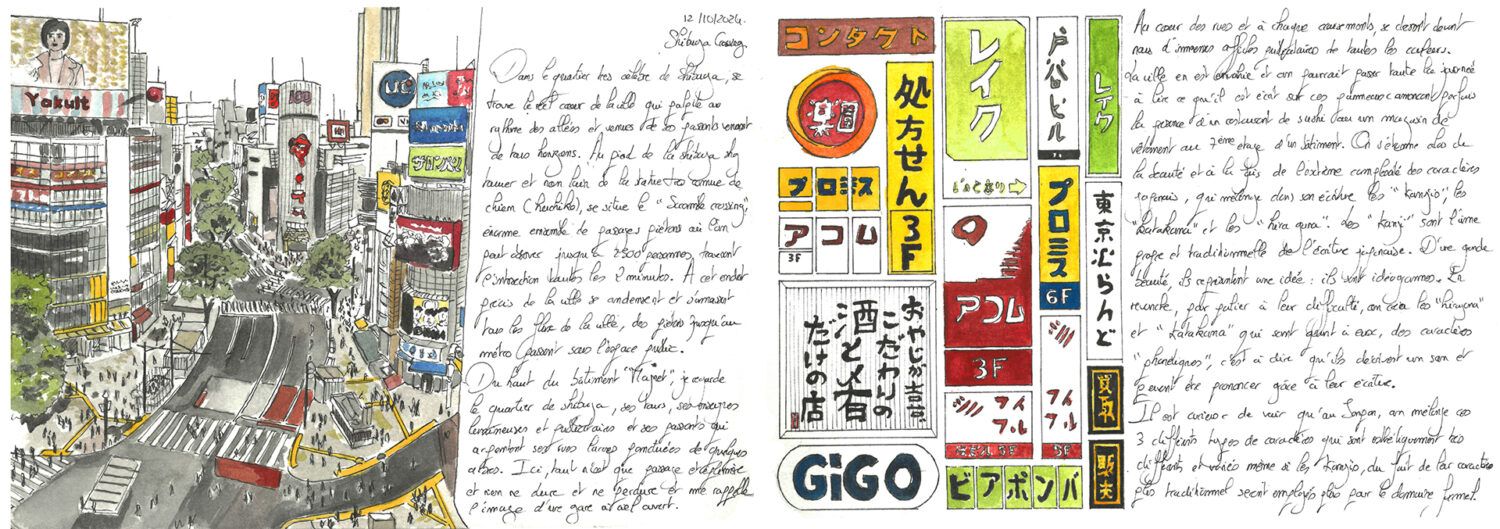 Yakult
UC
サロンパス
12/10/2024.
Shibuya Crossing.
Dans le quartier très célèbre de Shibuya, se
trouve le réel cœur de la ville qui palpite au
rythme des allées et venues de ses passants venant
de tous horizons. Au pied de la Shibuya Sky
tower et non loin de la statue très connue de
chien (Hachiko), se situe le "Scramble crossing",
énorme ensemble de passages piétons où l'on
peut observer jusqu'à 2500 personnes, traversant
l'intersection toutes les 2 minutes. A cet endroit
précis de la ville se condensent et s'amassent
tous les flux de la ville, des piétons jusqu'au
métro passent sous l'espace public.
Du haut du bâtiment "Magnet", je regarde
le quartier de Shibuya, ses tours, ses enseignes
lumineuses et publicitaires et ses passants qui
arpentent ses rues larges ponctuées de quelques
arbres. Ici, tout n'est que passage et éphémère
et rien ne dure et ne perdure et me rappelle
l'image d'une gare à ciel ouvert.
コンタクト
楽園
処方せん3F
プロミス
アコム
3F
おやじが
こだわりの
酒と肴
だけの店
GiGO
レイク
アコム
3F
フィ
フル
ビアポンバ
戸谷ビル
プロミス
6F
フィ
フル
5F
レイク
東京
らんど
Au cœur des rues et à chaque croisements, se dessent devant
nous d'immenses affiches publicitaires de toutes les couleurs.
La ville en est envahie et on pourrait passer toute la journée
à lire ce qu'il est écrit sur ces panneaux annonçant parfois
la présence d'un restaurant de sushi dans un magasin de
vêtement au 7ème étage d'un bâtiment. On s'étonne alors de
la beauté et à la fois de l'extrême complexité des caractères
japonais, qui mélange dans son écriture les "kanjis", les
"katakana" et les "hiragana". Les "kanji" sont l'âme
propre et traditionnelle de l'écriture japonaise. D'une grande
beauté, ils représentent une idée : ils sont idéogrammes. En
revanche, pour palier à leur difficulté, on créa les "hiragana"
et "katakana" qui sont quant à eux, des caractères
"phonétiques", c'est à dire qu'ils décrivent un son et
peuvent être prononcer grâce à leur écriture.
Il est curieux de voir qu'au Japon, on mélange ces
3 différents types de caractères qui sont esthétiquement très
différents et variés même si les kanjis, du fait de leur caractère
plus traditionnel seront employés plus pour le domaine formel.